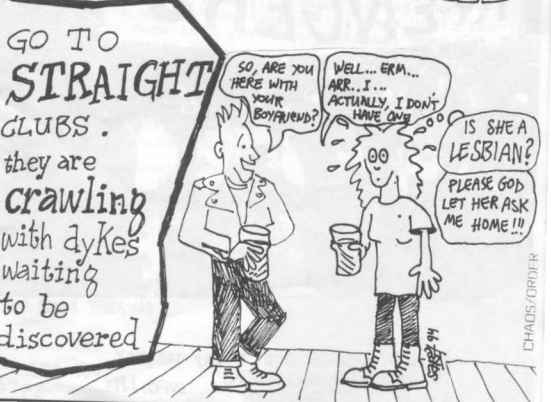 GO TO
STRAIGHT
CLUBS.
they are
crawling
with dykes
waiting
to be
discovered
SO, ARE YOU
HERE WITH
YOUR
BOYFRIEND?
WELL... ERM...
ARR..I...
ACTUALLY, I DON'T
HAVE ONE
IS SHE A
LESBIAN?
PLEASE GOD
LET HER ASK
ME HOME!!!
CHAOS/ORDER
94